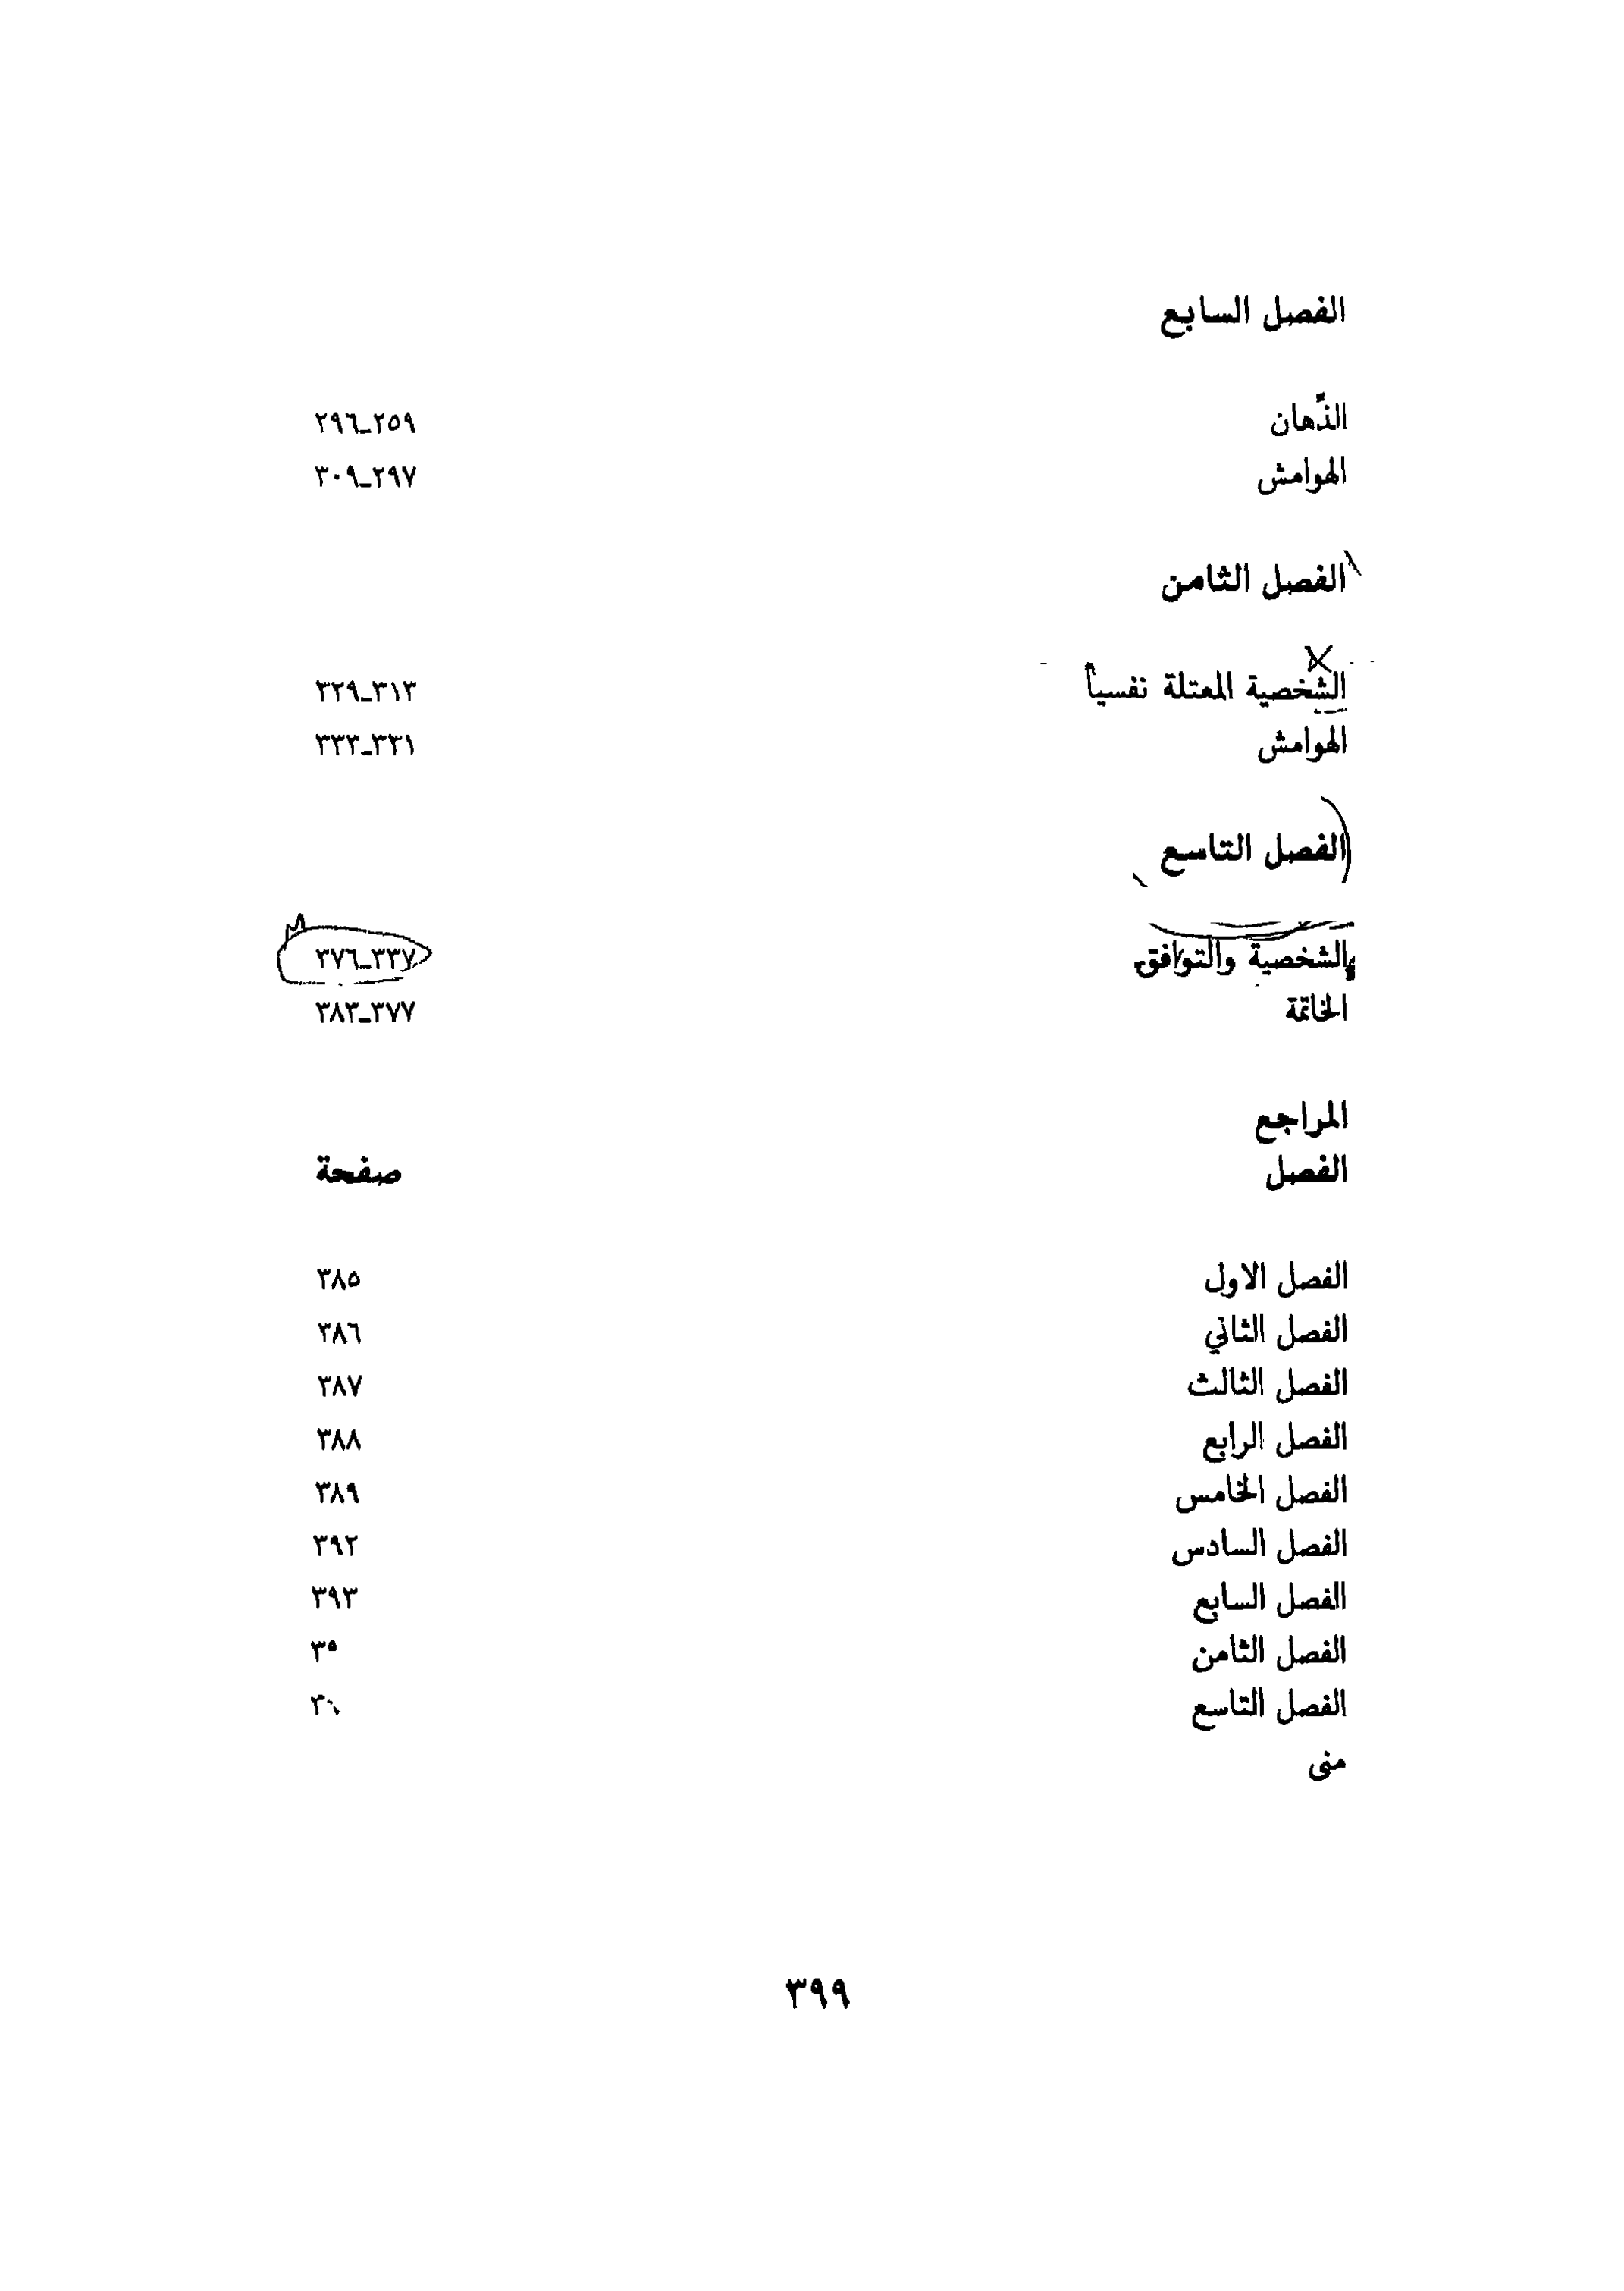 الفصل السابع
الذّهان ٢٥٩ـ٢٩٦
الهوامش ٢٩٧ـ٣٠٩
الفصل الثامن
الشخصية المعتلة نفسياً ٣١٣ـ٣٢٩
الهوامش ٣٣١ـ٣٣٣
الفصل التاسع
الشخصية والتوافق ٣٣٧ـ٣٧٦
الخاتمة ٣٧٧ـ٣٨٣
المراجع
الفصل صفحة
الفصل الاول ٣٨٥
الفصل الثاني ٣٨٦
الفصل الثالث ٣٨٧
الفصل الرابع ٣٨٨
الفصل الخامس ٣٨٩
الفصل السادس ٣٩٢
الفصل السابع ٣٩٣
الفصل الثامن
الفصل التاسع
منى
٣٩٩